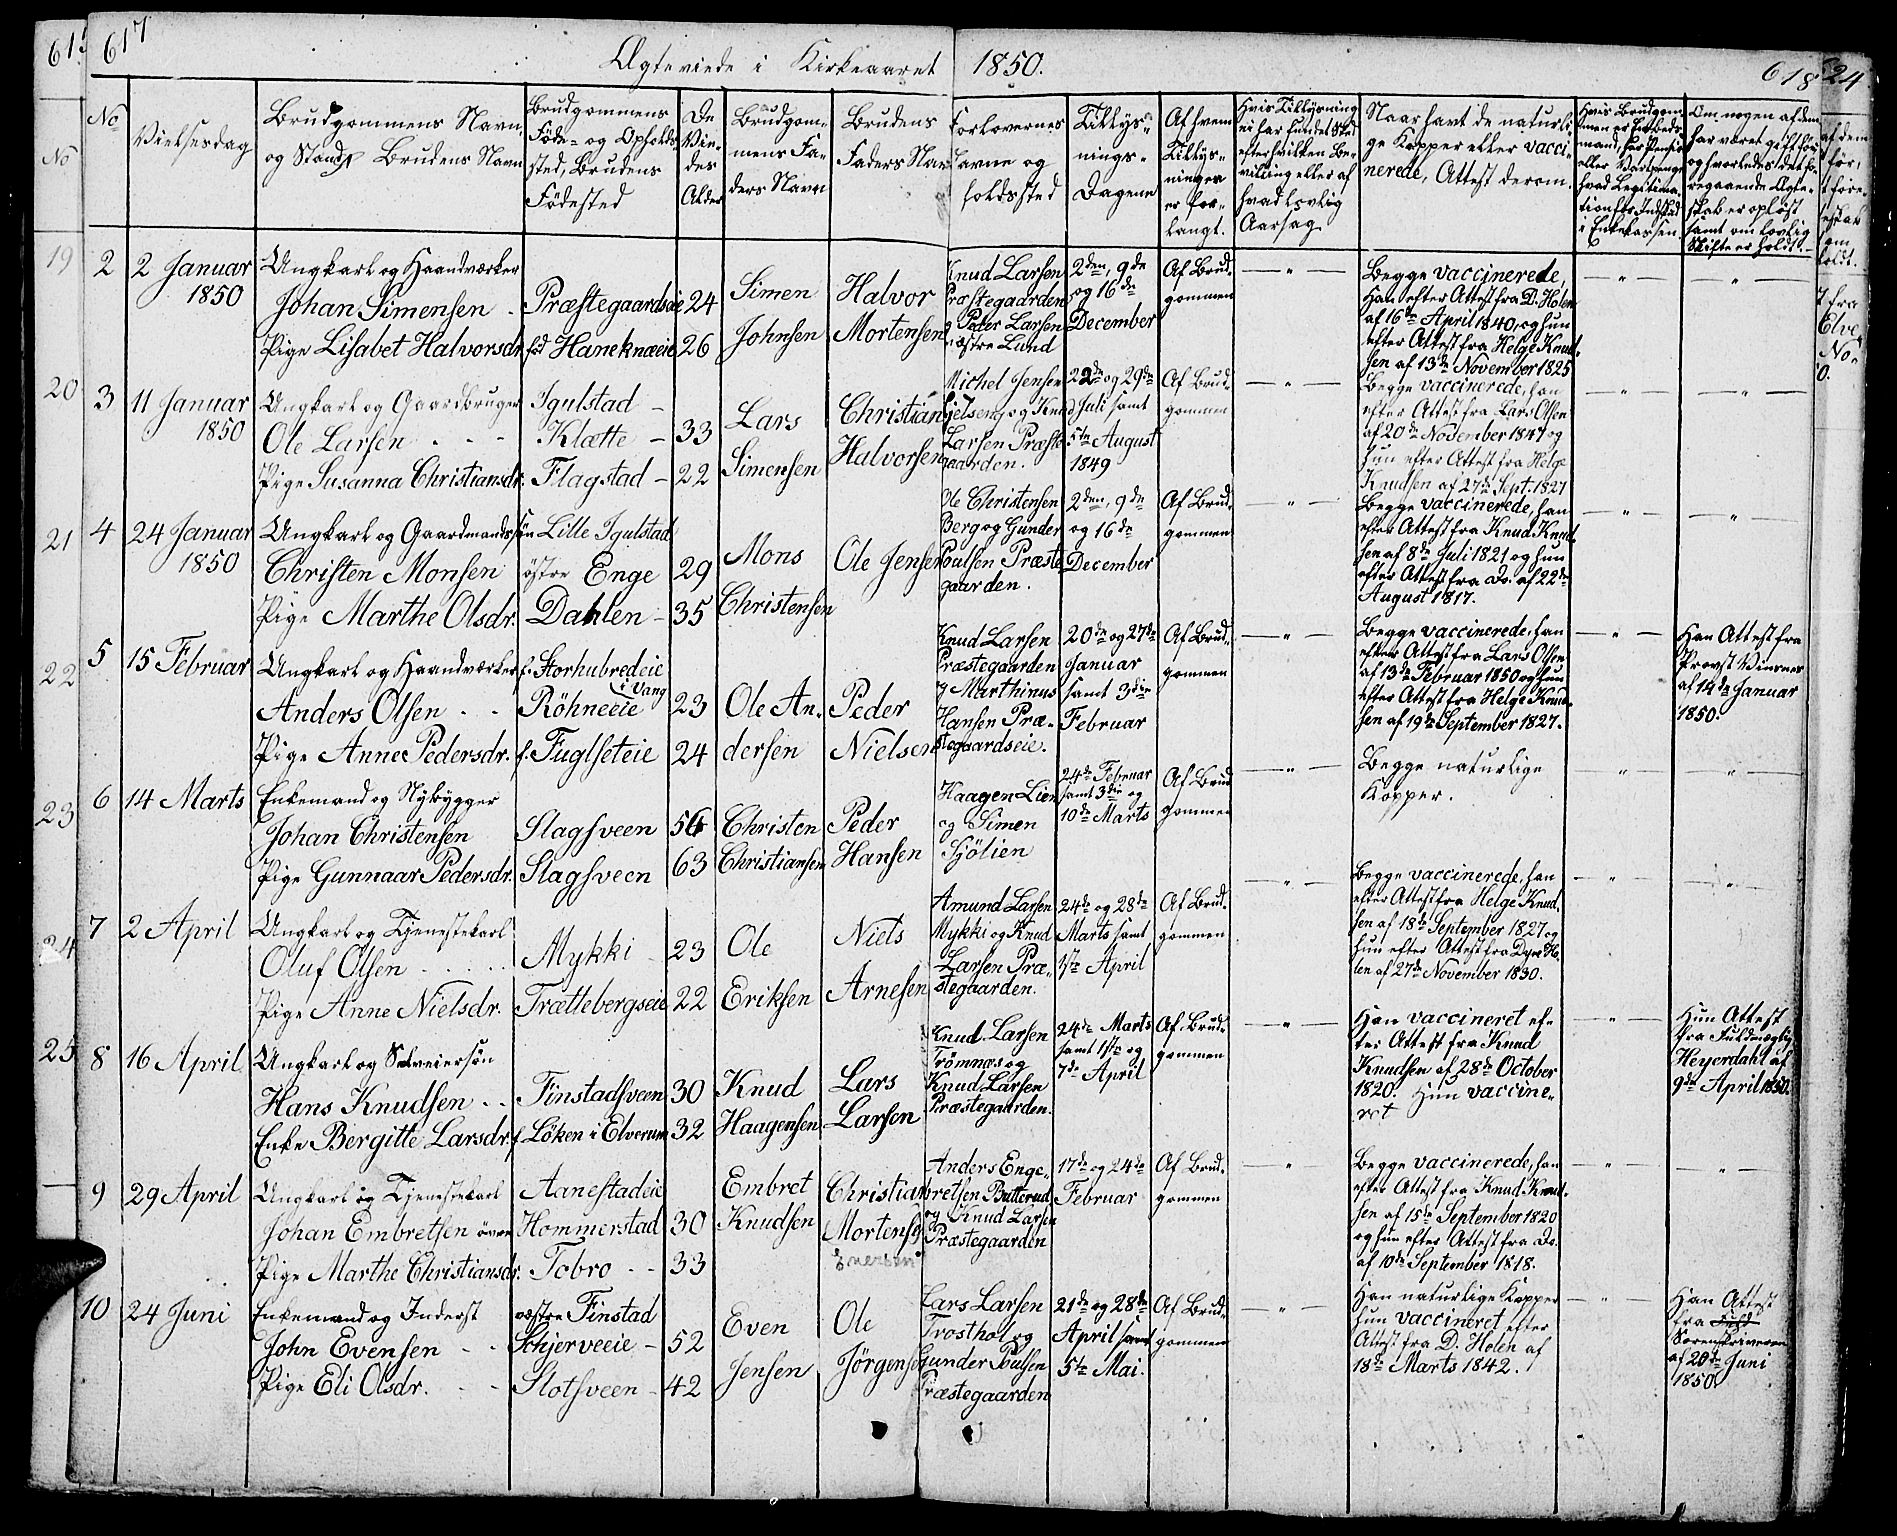 617
Ægteviede i Kirkeaaret 1850.
618
No
Vielsesdag
Brudgommens Navn
og Stand, Brudens Navn
Brudgommens
Føde- og Opholds-
sted, Brudens
Fødested
De
Vie-
des
Alder
Brudgom-
mens Fa-
ders Navn
Brudens
Faders Navn
Forlovernes
Navne og
holdssted
Tillys-
nings-
Dagene
Af hvem
Tillys-
ningen
er for-
langt.
Hvis Tillysning
ei har fundet Sted
efter hvilken Be-
villing eller af
hvad lovlig
Aarsag
Naar havt de naturli-
ge Kopper eller vacci-
nerede, Attest derom.
Om nogen af dem
har været gift før
og hvorledes det fo-
regaaende Ægte-
skab er opløst
samt om lovlig
Skifte er holdt.
2
2 Januar
1850
Ungkarl og Haandværker
Johan Simensen
Pige Lisabet Halvorsdr.
Præstegaardseie
fød Haneknæeie
24
26
Simen
Johnsen
Halvor
Mortensen
Knud Larsen
Præstegaarden
Peder Larsen
østre Lund
2den, 9de
og 16de
December
Af Brud-
gommen
Begge vaccinerede,
Han efter Attest fra D. Holen
af 16de April 1840, og hun
efter Attest fra Helge Knud-
sen af 13de November 1825
3
11 Januar
1850
Ungkarl og Gaardbruger
Ole Larsen
Pige Susanna Christiansdr.
Igulstad
Klætte
Flagstad
33
22
Lars
Simensen
Christian
Halvorsen
Michel Jensen
Gjelsen, og Knud
Larsen Præste-
gaarden.
22de og 29de
Juli samt
5te August
1849
Af Brud-
gommen
Begge vaccinerede, han
efter Attest fra Lars Olsen
af 20de November 1847 og
hun efter Attest fra Helge
Knudsen af 27de Sept. 1827
4
24 Januar
1850
Ungkarl og Gaardmandssøn
Christen Monsen
Pige Marthe Olsdr.
Lille Igulstad
østre Enge
Dahlen
29
35
Mons
Christensen
Ole Jensen
Ole Christensen
Berg og Gunder
Poulsen Præste-
gaarden.
2den, 9de
og 16de
December
Af Brud-
gommen
Begge vaccinerede, han
efter Attest fra Knud Knud-
sen af 8de Juli 1821 og hun
efter Attest fra Do. af 22de
August 1817.
5
15 Februar
Ungkarl og Haandværker
Anders Olsen
Pige Anne Pedersdr.
f. Storhubredeie
i Vang
Röhneeie
f. Fuglseteie
23
24
Ole An-
dersen
Peder
Nielsen
Knud Larsen
Præstegaarden
og Marthinus
Hansen Præ-
stegaardseie.
20de og 27de
Januar
samt 3die
Februar
Af Brud-
gommen
Begge vaccinerede, han
efter Attest fra Lars Olsen
af 13de Februar 1850 og hun
efter Attest fra Helge Knud-
sen af 19de September 1827.
Han Attest fra
Provst
af 14de Januar
1850.
6
14 Marts
Enkemand og Nybygger
Johan Christensen
Pige Gunnaar Pedersdr.
Slagsveen
Slagsveen
56
63
Christen
Christiansen
Peder
Hansen
Haagen Lien
og Simen
Sjölien
24de Februar
samt 3die og
10de Marts
Af Brud-
gommen
Begge naturlige
Kopper.
7
2 April
Ungkarl og Tjenestekarl
Oluf Olsen
Pige Anne Nielsdr.
Mykki
Trættebergseie
23
22
Ole
Eriksen
Niels
Arnesen
Amund Larsen
Mykki og Knud
Larsen Præ-
stegaarden.
24de og 28de
Marts samt
1ste April
Af Brud-
gommen
Begge vaccinerede, han
efter Attest fra Helge Knud-
sen af 18de September 1827 og
hun efter Attest fra Dyre Ho-
len af 27de November 1830.
8
16 April
Ungkarl og Selveiersøn
Hans Knudsen
Enke Bergitte Larsdr.
Finstadsveen
f. Löken i Elverum
30
32
Knud
Haagensen
Lars
Larsen
Knud Larsen
Trømnæs og
Knud Larsen
Præstegaarden.
24de Marts
samt 1ste og
7de April
Af Brud-
gommen
Han vaccineret ef-
ter Attest fra Knud
Knudsen af 28de October
1820. Hun vaccine-
ret
Hun Attest
fra Fuldmægtig
Heyerdahl af
9de April 1850.
9
29 April
Ungkarl og Tjenestekarl
Johan Embretsen
Pige Marthe Christiansdr.
Aanestadeie
Hommerstad
Tobro
30
33
Embret
Knudsen
Christian
Mortensen
Anders Enge-
bretsen Butterud
og Knud Larsen
Præstegaarden
17de og 24de
Februar
Af Brud-
gommen
Begge vaccinerede, han
efter Attest fra Knud Knud-
sen af 15de September 1820
og hun efter Attest fra Do.
af 10de September 1818.
10
24 Juni
Enkemand og Inderst
John Evensen
Pige Eli Olsdr.
østre Finstad
Schjerveeie
Slotsveen
52
42
Even
Jensen
Ole
Jørgensen
Lars Larsen
Trosthol og
Gunder Poulsen
Præstegaarden
21de og 28de
April samt
5te Mai.
Af Brud-
gommen
Han naturlige Kopper
hun vaccineret efter
Attest fra D. Holen af
18de Marts 1842.
Han Attest
fra
Sorenskriveren
af 20de Juni
1850.
19
20
21
22
23
24
25